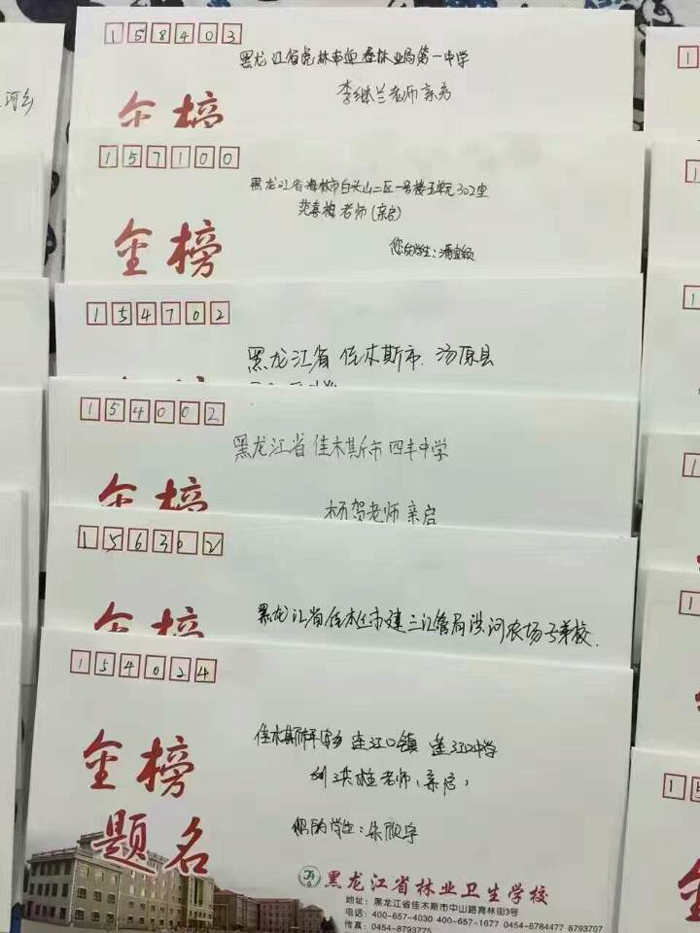 河乡
158403
黑龙江省虎林市迎春林业局第一中学
李继兰老师亲启
金榜
157100
黑龙江省海林市白头山二区一号楼五单元302室
范喜梅老师(亲启)
金榜
您的学生:潘宝颖
154702
黑龙江省 佳木斯市 汤原县
154002
黑龙江省 佳木斯市 四丰中学
金榜
杨贺老师 亲启
156302
黑龙江省佳木斯市建三江管局洪河农场子弟校.
金榜
154024
连江口镇 连江口中学
刘洪桂老师(亲启)
金榜
题名
您的学生:朱顺宇
黑龙江省林业卫生学校
地址:黑龙江省佳木斯市中山路育林街3号
电话:400-657-4030 400-657-1677 0454-8784477 8793707
传真:0454-8793775